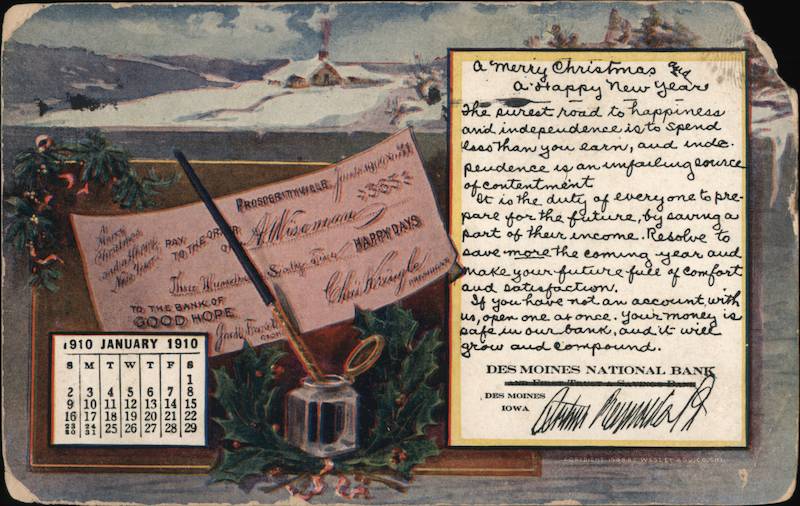 A Merry Christmas and
A Happy New Year
The surest road to happiness
and independence is to spend
less than you earn, and inde-
pendence is an unfailing source
of contentment
It is the duty of everyone to pre-
pare for the future, by saving a
part of their income. Resolve to
save more the coming year and
make your future full of comfort
and satisfaction.
If you have not an account with
us, open one at once. Your money is
safe in our bank, and it will
grow and compound.
DES MOINES NATIONAL BANK
DES MOINES
IOWA
Arthur Reynolds
PROSPERITYVILLE, January
365
A Merry
Christmas
and a Happy
New Year
PAY
TO THE ORDER
OF
A. Wiseman
HAPPY DAYS
Three Hundred Sixty five
TO THE BANK OF
GOOD HOPE
Chris Kringle
1910 JANUARY 1910
S M T W T F S
1
2 3 4 5 6 7 8
9 10 11 12 13 14 15
16 17 18 19 20 21 22
23 24 25 26 27 28 29
30 31